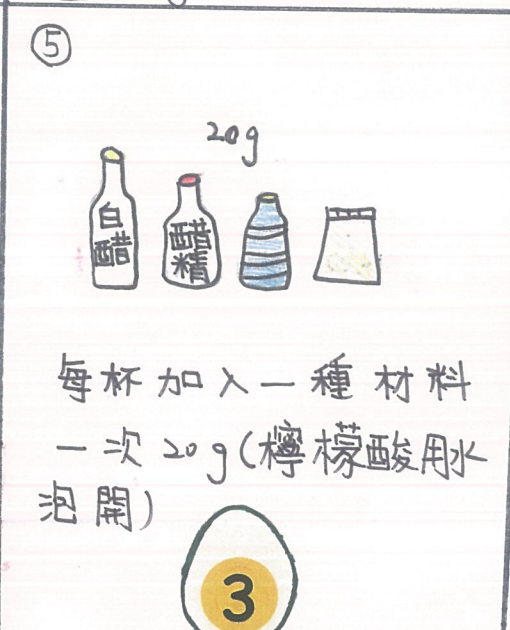 ⑤
20g
白醋
醋精
每杯加入一種材料
一次20g(檸檬酸用水
泡開)
3